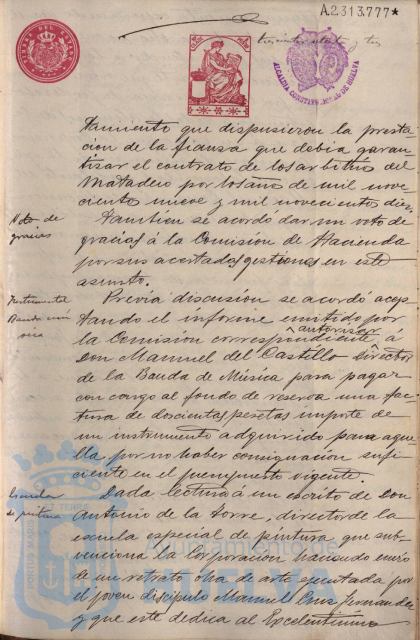 A.2.313.777*
TIMBRE DEL ESTADO
ALCALDIA CONSTITUCIONAL DE HUELVA
tamiento que dispusieron la presta
cion de la fianza que debia garan
tizar el contrato de los arbitrios del
Matadero por los años de mil nove
cientos nueve y mil novecientos diez.
Voto de
gracias
Tambien se acordó dar un voto de
gracias á la Comision de Hacienda
por sus acertadas gestiones en este
asunto.
Instrumental
Banda
Previa discusion se acordó acep
tando el informe emitido por
la Comision correspondiente autorizar á
Don Manuel del Castillo director
de la Banda de Música para pagar
con cargo al fondo de reserva una fac
tura de doscientas pesetas importe de
un instrumento adquirido para aque
lla por no haber consignacion sufi
ciente en el presupuesto vigente.
Escuela
de pintura
Dada lectura á un escrito de Don
Antonio de la Torre, director de la
escuela especial de pintura que sub
venciona la Corporacion haciendo envio
de un retrato obra de arte ejecutada por
el joven discipulo Manuel Cruz Fernandez
y que este dedica al Excelentisimo
Ayuntamiento de
HUELVA